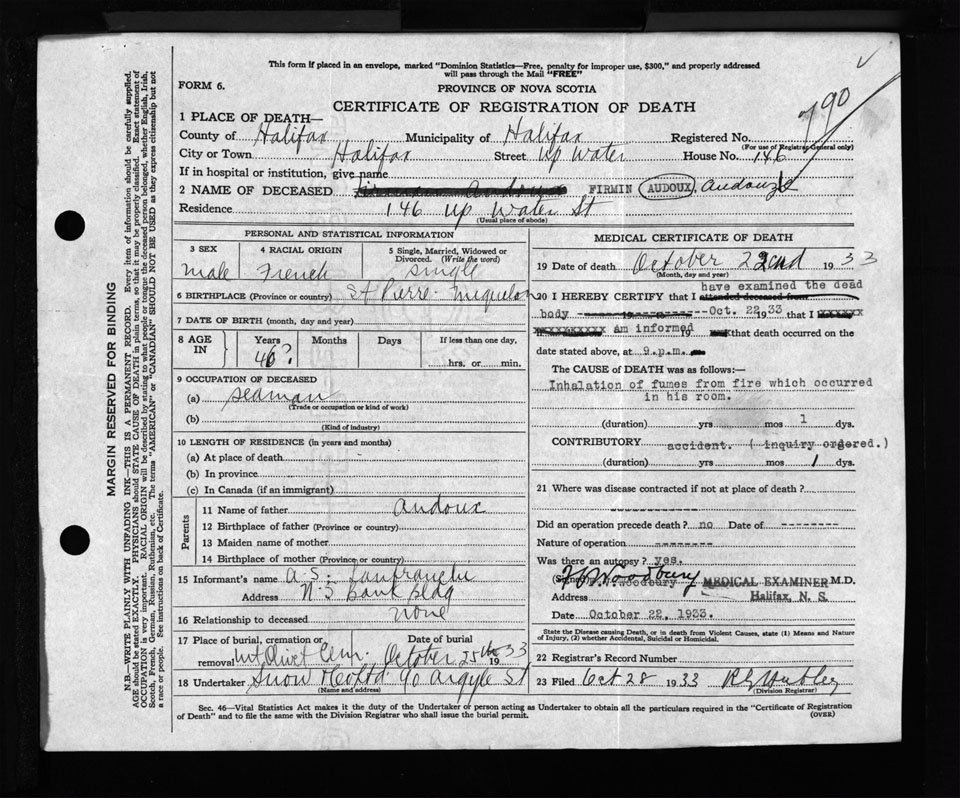 This form if placed in an envelope, marked "Dominion Statistics—Free, penalty for improper use, $300," and properly addressed
will pass through the Mail "FREE"
FORM 6.
PROVINCE OF NOVA SCOTIA
790
CERTIFICATE OF REGISTRATION OF DEATH
1 PLACE OF DEATH—
County of Halifax Municipality of Halifax Registered No.
(For use of Registrar General only)
City or Town Halifax Street Up Water House No. 146
If in hospital or institution, give name
2 NAME OF DECEASED FIRMIN AUDOUX, Audoux
Residence 146 Up Water St
(Usual place of abode)
PERSONAL AND STATISTICAL INFORMATION
3 SEX 4 RACIAL ORIGIN 5 Single, Married, Widowed or
Divorced. (Write the word)
male French single
6 BIRTHPLACE (Province or country) St Pierre Miquelon
7 DATE OF BIRTH (month, day and year)
8 AGE IN Years Months Days If less than one day,
46? hrs. or min.
9 OCCUPATION OF DECEASED
(a) Seaman
(Trade or occupation or kind of work)
(b)
(Kind of industry)
10 LENGTH OF RESIDENCE (in years and months)
(a) At place of death
(b) In province
(c) In Canada (if an immigrant)
Parents
11 Name of father Audoux
12 Birthplace of father (Province or country)
13 Maiden name of mother
14 Birthplace of mother (Province or country)
15 Informant's name A. S. Lanfranchi
Address N.S Bank Bldg
16 Relationship to deceased none
17 Place of burial, cremation or Date of burial
removal Mt Olivet Cem. October 25th 1933
18 Undertaker Snow & Co Ltd 90 Argyle St
(Name and address)
MEDICAL CERTIFICATE OF DEATH
19 Date of death October 22nd 1933
(Month, day and year)
have examined the dead
20 I HEREBY CERTIFY that I attended deceased from
body Oct. 22 1933 that I
am informed 19 that death occurred on the
date stated above, at 9.p.m.
The CAUSE of DEATH was as follows:—
Inhalation of fumes from fire which occurred
in his room.
(duration) yrs mos 1 dys.
CONTRIBUTORY accident. ( inquiry ordered.)
(duration) yrs mos 1 dys.
21 Where was disease contracted if not at place of death?
Did an operation precede death? no Date of
Nature of operation
Was there an autopsy? yes.
(Signed) Woodbury MEDICAL EXAMINER M.D.
Address Halifax, N. S.
Date October 22, 1933.
State the Disease causing Death, or in death from Violent Causes, state (1) Means and Nature
of Injury, (2) whether Accidental, Suicidal or Homicidal.
22 Registrar's Record Number
23 Filed Oct 28 1933
(Division Registrar)
Sec. 46—Vital Statistics Act makes it the duty of the Undertaker or Person acting as Undertaker to obtain all the particulars required in the "Certificate of Registration
of Death" and to file the same with the Division Registrar who shall issue the burial permit.
(OVER)
MARGIN RESERVED FOR BINDING
N.B.—WRITE PLAINLY WITH UNFADING INK—THIS IS A PERMANENT RECORD. Every item of information should be carefully supplied.
AGE should be stated EXACTLY. PHYSICIANS should STATE CAUSE OF DEATH in plain terms, so that it may be properly classified. Exact statement of
OCCUPATION is very important. RACIAL ORIGIN will be described by stating to what people or tongue the deceased person belonged, whether English, Irish,
Scotch, French, German, Russian, Ruthenian, etc. The terms "AMERICAN" or "CANADIAN" SHOULD NOT BE USED as they express citizenship but not
a race or people. See instructions on back of Certificate.